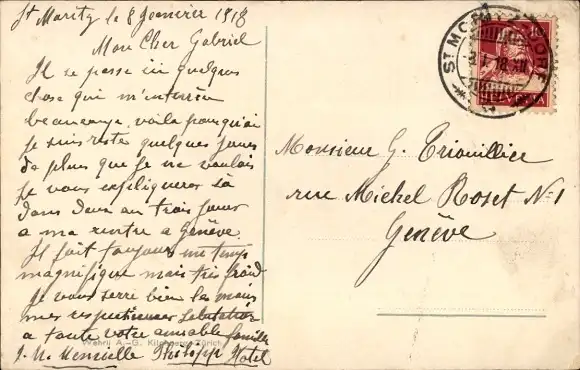 St Moritz le 8 Jeanvier 1918
Mon Cher Gabriel
Il se passe ici quelques
chose qui m'interrese
beaucoup, voila pourquoi
je suis reste quelques jours
de plus que je ne voulais
Je vous expliqueres sà
dans deux au trois jours
a ma rentre a Genève
Il fait toujours un temps
magnifique mais très froid
Je vous serre bien les mains
mes respectueuses salutation
a toute votre aimable famille
Philipp Hotel
Wehrli A.-G. Kilchberg-Zürich
ST. MORITZ DORF
8.I.18.XII
HELVETIA
Monsieur G. Triouillier
rue Michel Roset No 1
Genève